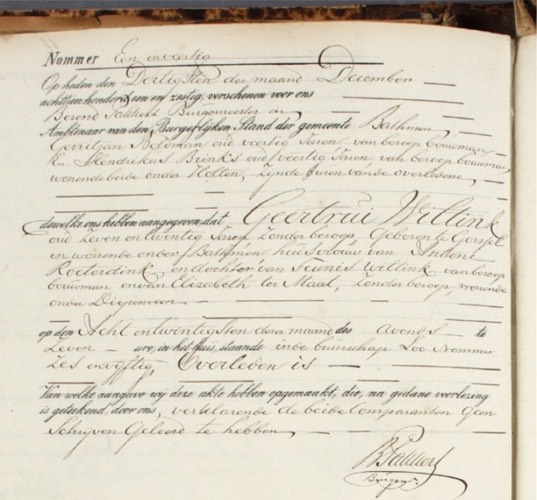 Nommer Een en veertig
Op heden den Dertigsten der maand December
achttien honderd een en zestig, verschenen voor ons
Berend Burgemeester en
Ambtenaar van den Burgerlijken Stand der gemeente Bathmen,
Gerritjan Beldman oud veertig Jaren, van beroep bouwman
En Hendrikus Brinks oud veertig Jaren van beroep bouwman,
wonende beide onder Holten, zynde buren van de overledene,
dewelke ons hebben aangegeven dat Geertrui Willink
oud Zeven en twintig Jaren Zonder beroep, Geboren te Gorssel
en wonende onder Bathmen huisvrouw van Antoni
Roeterdink, en dochter van Teunis Willink van beroep
bouwman en van Elizabeth ter Maat, Zonder beroep, wonende
onder Diepenveen
op den Acht en twintigsten dezer maand des avonds te
Zeven ure, in het huis, staande in de buurschap Loo Nommer
Zes en vyftig Overleden is
Van welke aangave wy deze akte hebben opgemaakt, die, na gedane voorlezing
is geteekend door ons, verklarende de beide Comparanten Geen
Schryven Geleerd te hebben,